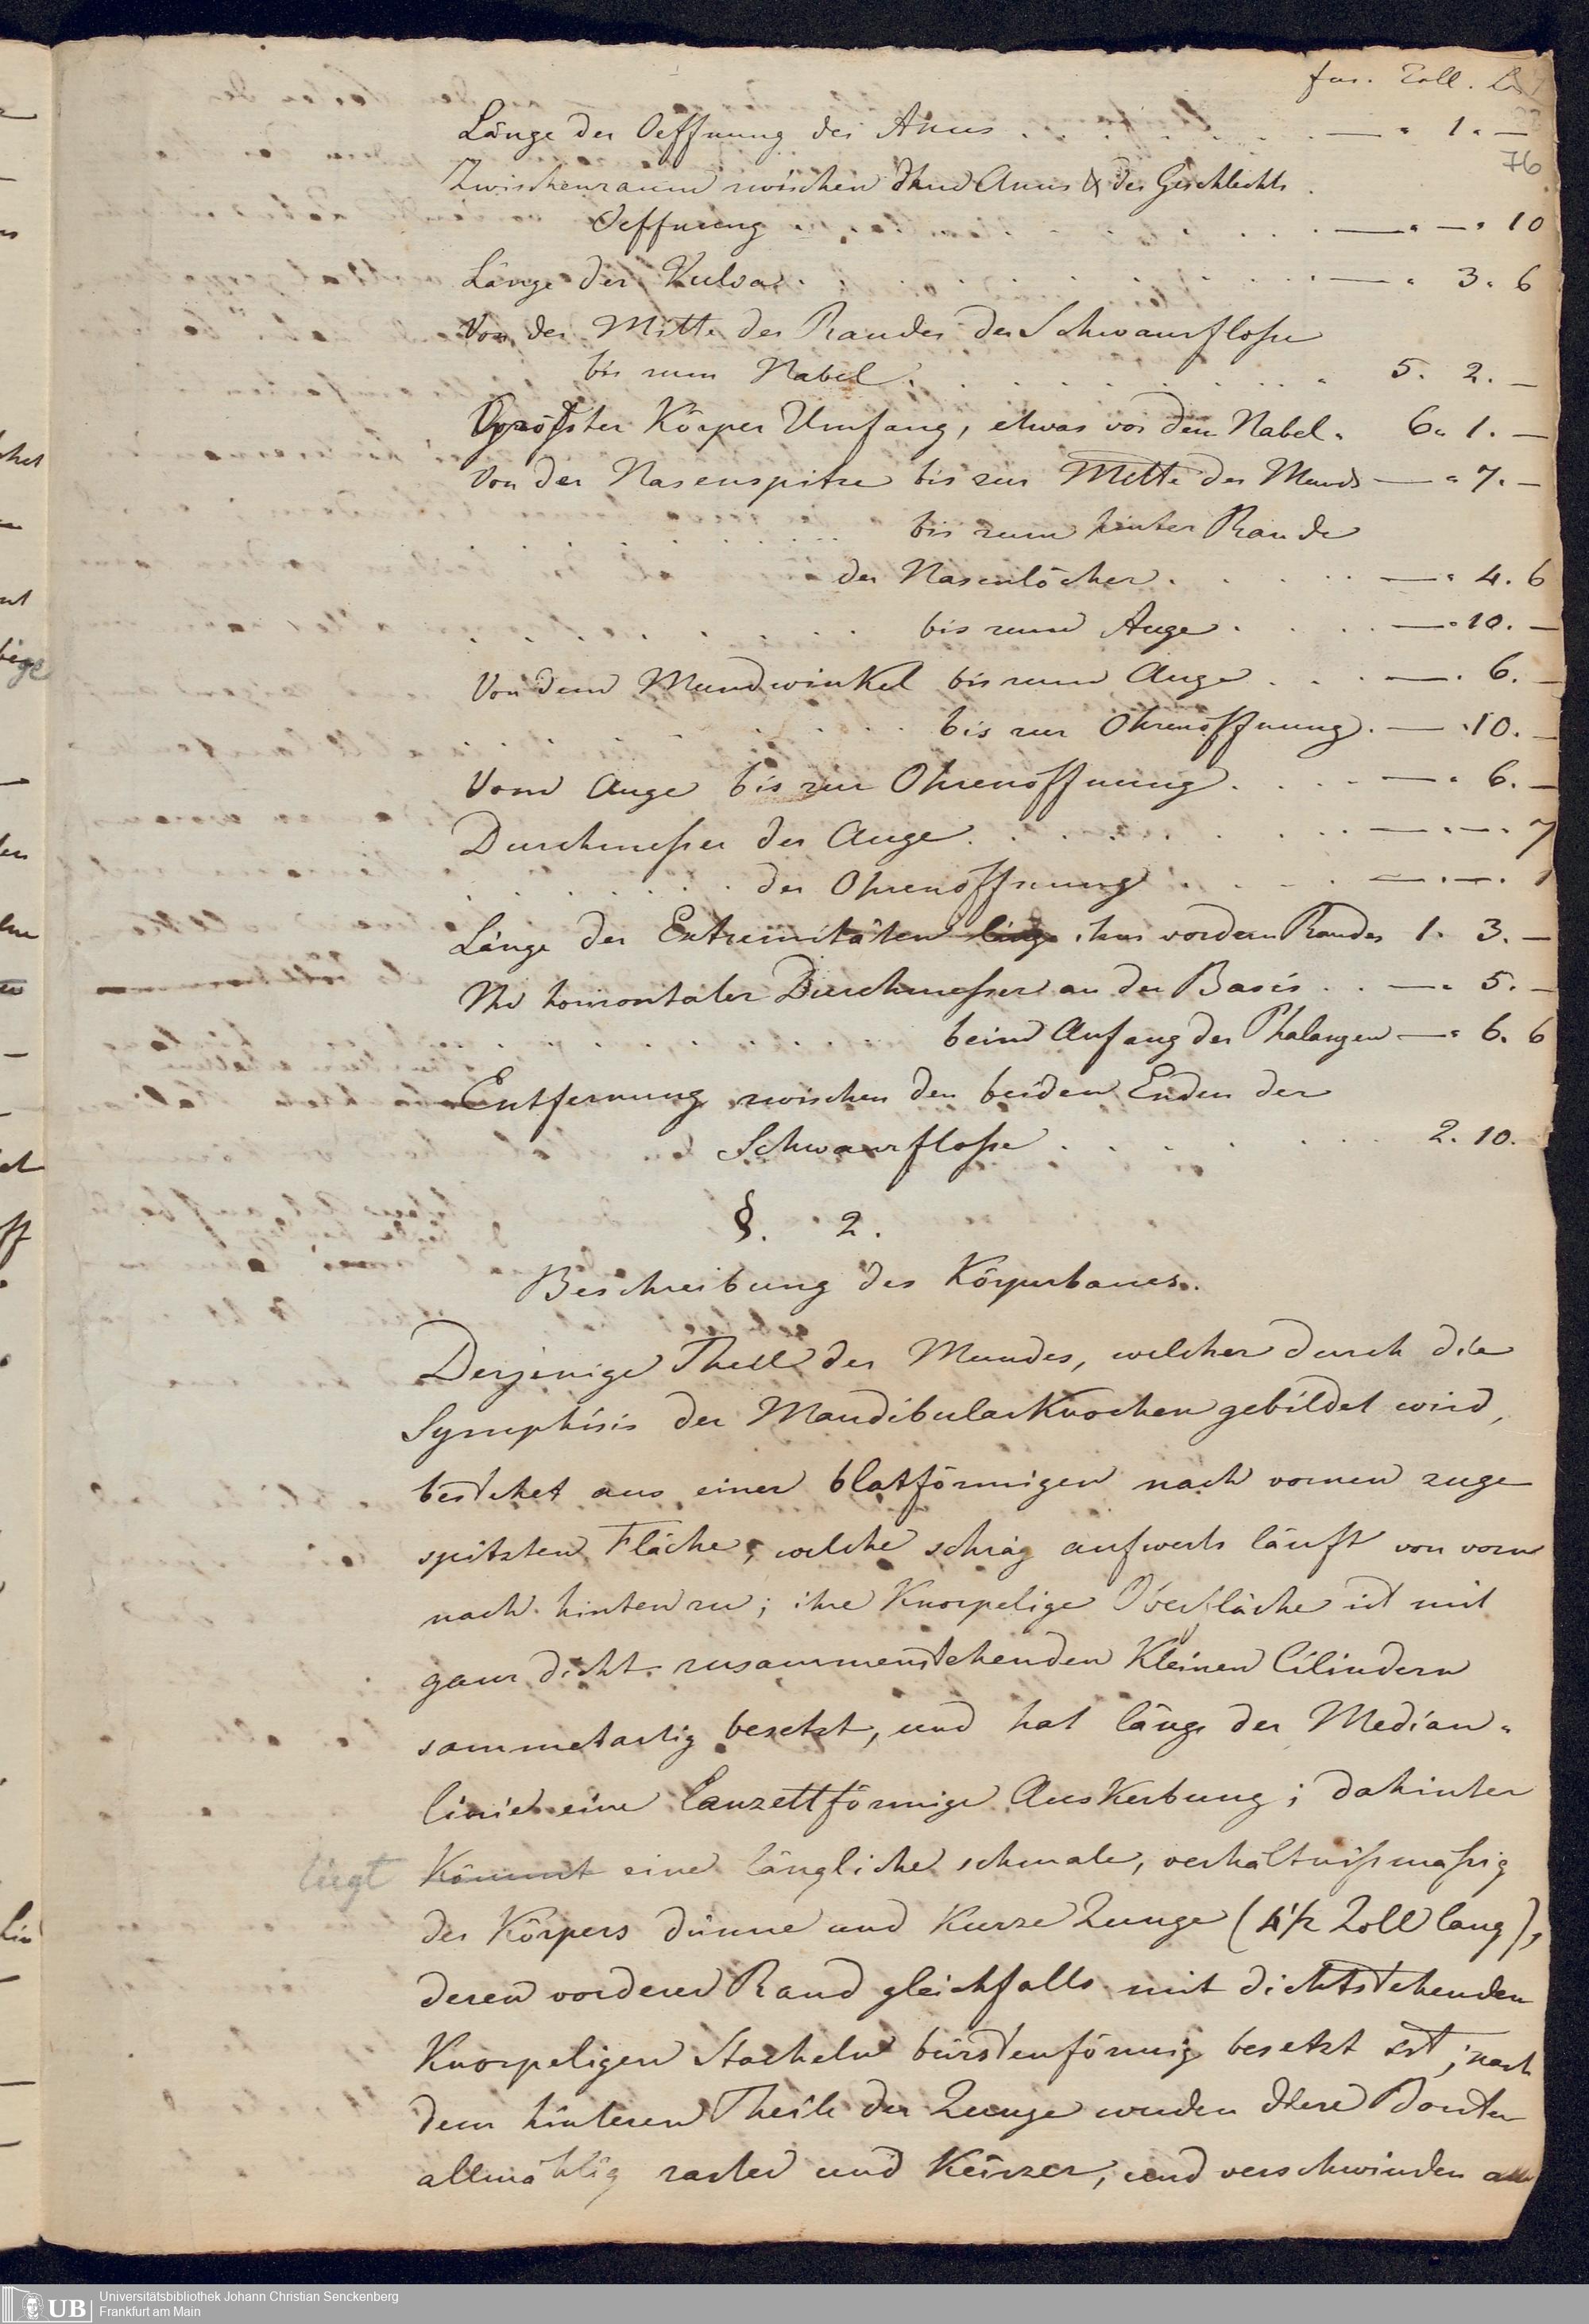 fus. Zoll. L
Länge der Oeffnung des Anus . . . . . . — " 1. —
76
Zwischenraum zwischen dem Anus & der Geschlechts
Oeffnung . . . . . . — " — " 10
Länge der Vulva . . . . . . — " 3. 6
Von der Mitte des Randes der Schwanzfloße
bis zum Nabel . . . . . . 5. 2. —
Größter Körper Umfang, etwas vor dem Nabel. 6. 1. —
Von der Nasenspitze bis zur Mitte des Munds — " 7. —
. . . . . . bis zum hinter Rande
der Nasenlöcher . . . . — " 4. 6
. . . . . . bis zum Auge . . . — " 10. —
Von dem Mundwinkel bis zum Auge . . . — . 6. —
. . . . . . bis zur Ohrenöffnung . — . 10. —
Vom Auge bis zur Ohrenöffnung . . . . — . 6. —
Durchmeßer des Auge . . . . . . — . — . 7
. . . . . . der Ohrenöffnung . . . . — . — . 1
Länge der Extremitäten längs ihres vordern Randes 1. 3. —
Ihr horizontaler Durchmeßer an der Basis . . — . 5. —
. . . . . . beim Anfang der Phalangen — . 6. 6
Entfernung zwischen den beiden Enden der
Schwanzfloße . . . . . . 2. 10.
§. 2.
Beschreibung des Körperbaues.
Derjenige Theil des Mundes, welcher durch die
Symphisis der Mandibularknochen gebildet wird,
bestehet aus einer blatförmigen nach vornen zuge
spitzten Fläche, welche schräg aufwerts läuft von vorn
nach hinten zu; ihre Knorpelige Oberfläche ist mit
ganz dicht zusammenstehenden Kleinen Cilindern
sammetartig besetzt, und hat längs der Median-
linie eine Lanzettförmige Auskerbung; dahinter
liegt Kömmt eine längliche schmale, verhältnißmaßig
des Körpers dünne und Kurze Zunge (4½ Zoll lang),
deren vorderer Rand gleichfalls mit dichtstehenden
Knorpeligen Stacheln bürstenförmig besetzt ist; nach
dem hinteren Theile der Zunge werden diese Borsten
allmählig zarter und Kürzer, und verschwinden